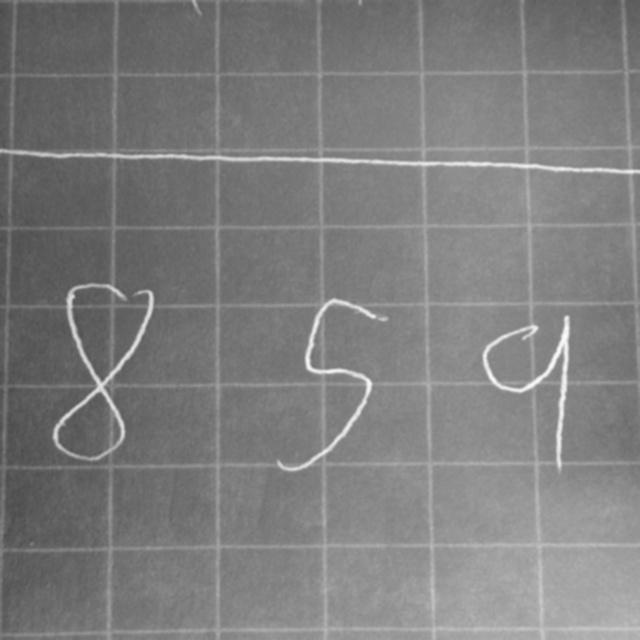 8 5 9